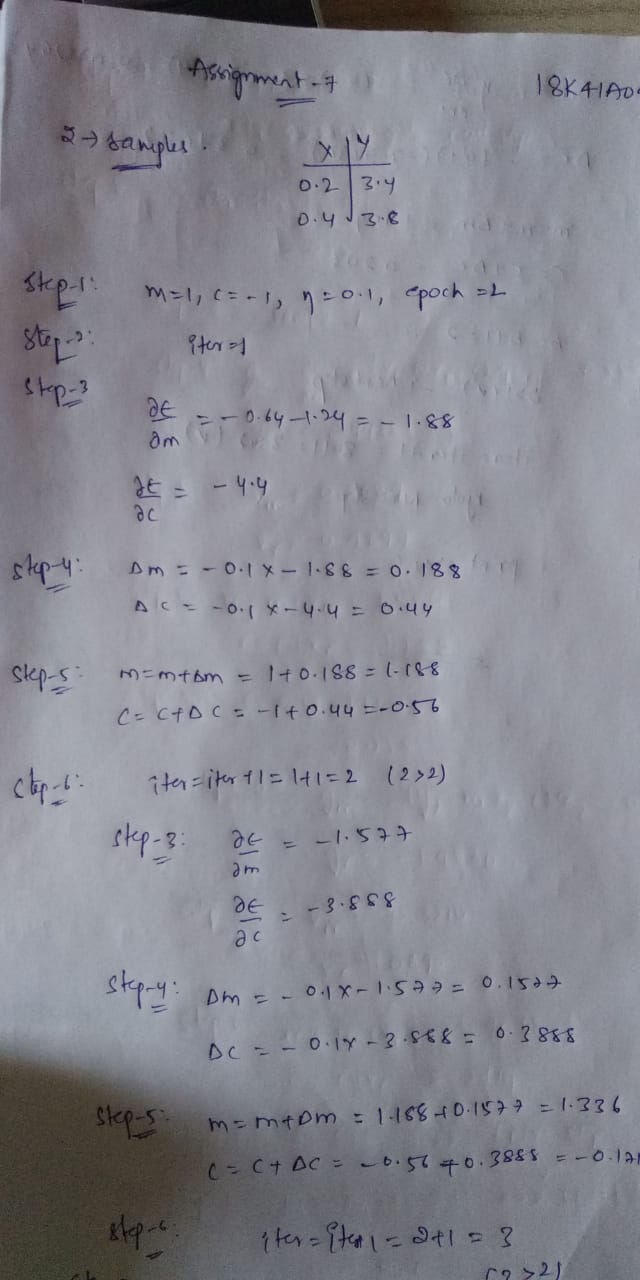 Assignment-7
18K41A0
2→ samples.
x | y
0.2 | 3.4
0.4 | 3.8
Step-1: m=1, c=-1, η=0.1, epoch =2
Step-2: iter=1
Step-3
∂E/∂m = -0.64-1.24 = -1.88
∂E/∂c = -4.4
Step-4: Δm = -0.1 x -1.88 = 0.188
Δc = -0.1 x -4.4 = 0.44
Step-5: m=m+Δm = 1+0.188 = 1.188
C = C+ΔC = -1+0.44 = -0.56
Step-6: iter=iter+1=1+1=2 (2>2)
Step-3: ∂E/∂m = -1.577
∂E/∂c = -3.888
Step-4: Δm = -0.1x-1.577 = 0.1577
ΔC = -0.1x-3.888 = 0.3888
Step-5: m=m+Δm = 1.188+0.1577 = 1.336
C = C+ΔC = -0.56+0.3888 = -0.171
Step-6: iter=iter1=2+1=3
(2>2)